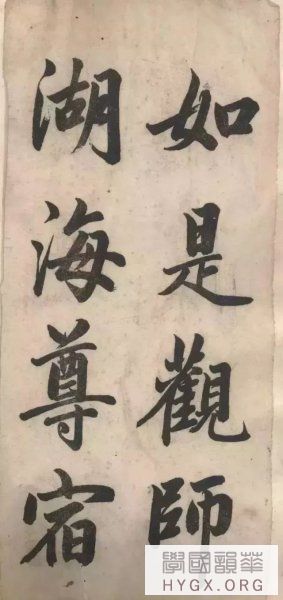 如是觀師
湖海尊宿
華韻國學
HYGX.ORG